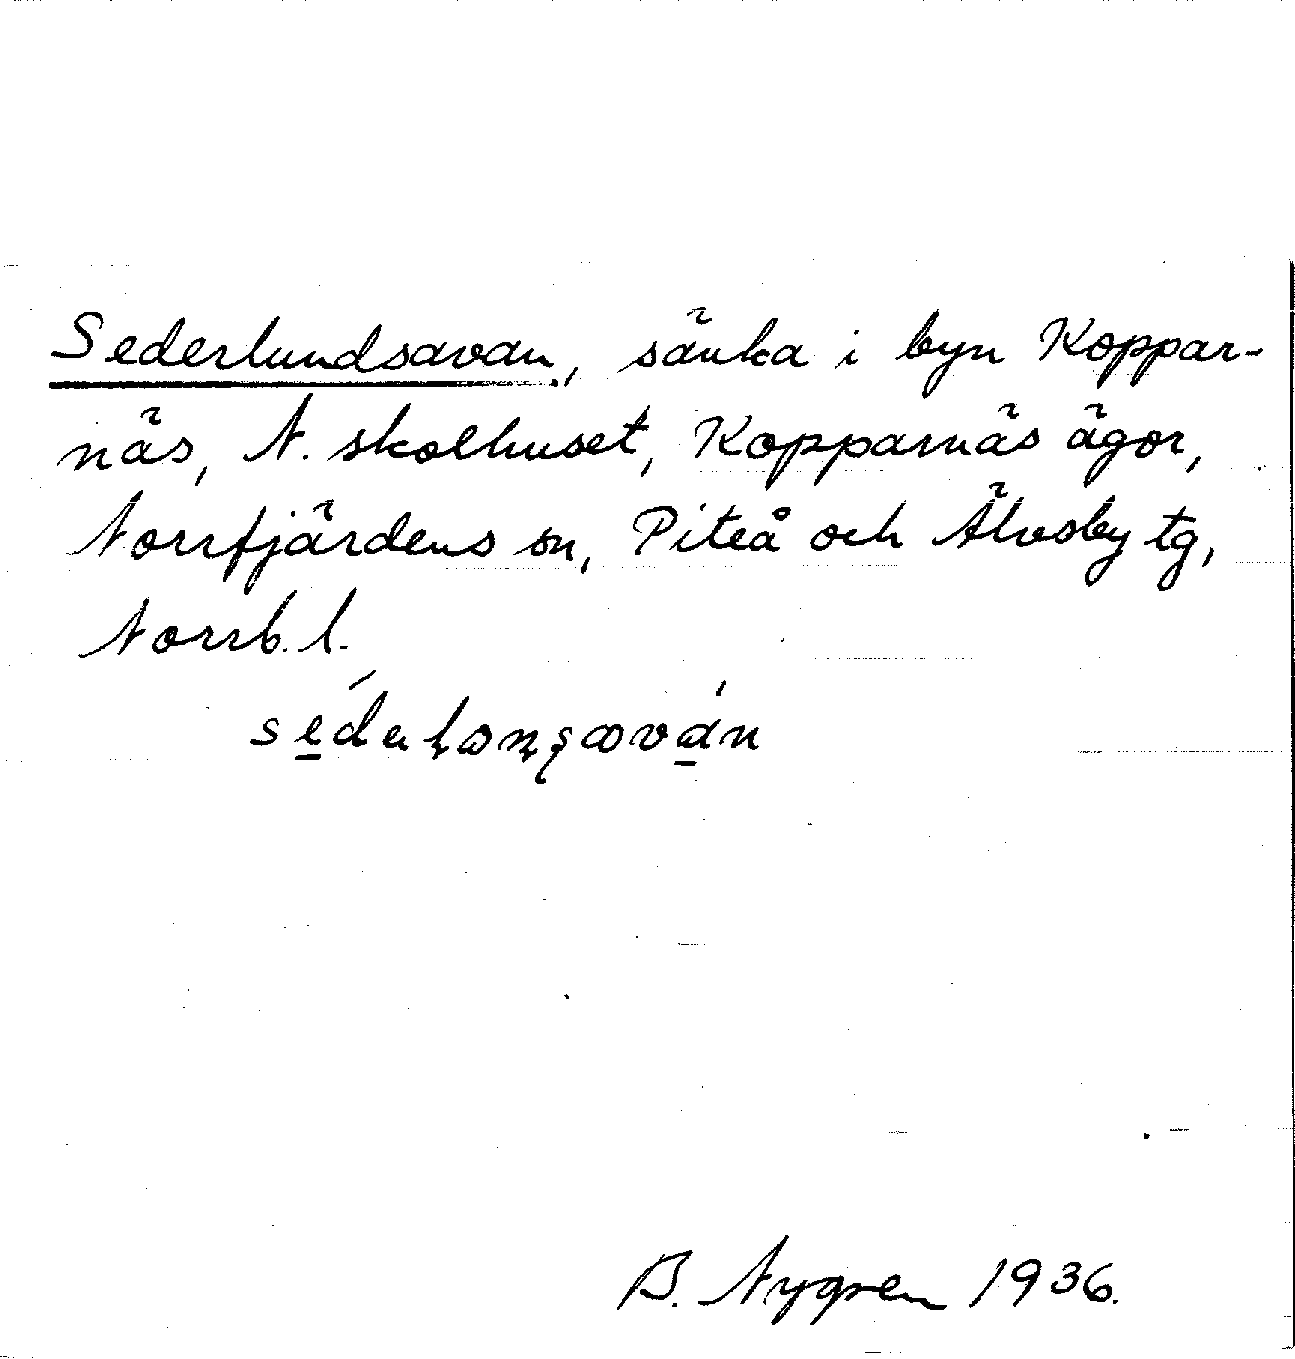 Sederlundsavan, sänka i byn Koppar-
näs, N. skolhuset, Kopparnäs ägor,
Norrfjärdens sn, Piteå och Älvsby tg,
Norrb. l.
B. Nygren 1936.